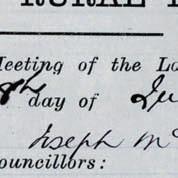 RURAL
Meeting of the Lo
8th day of Ju
Joseph Mc
ouncillors: